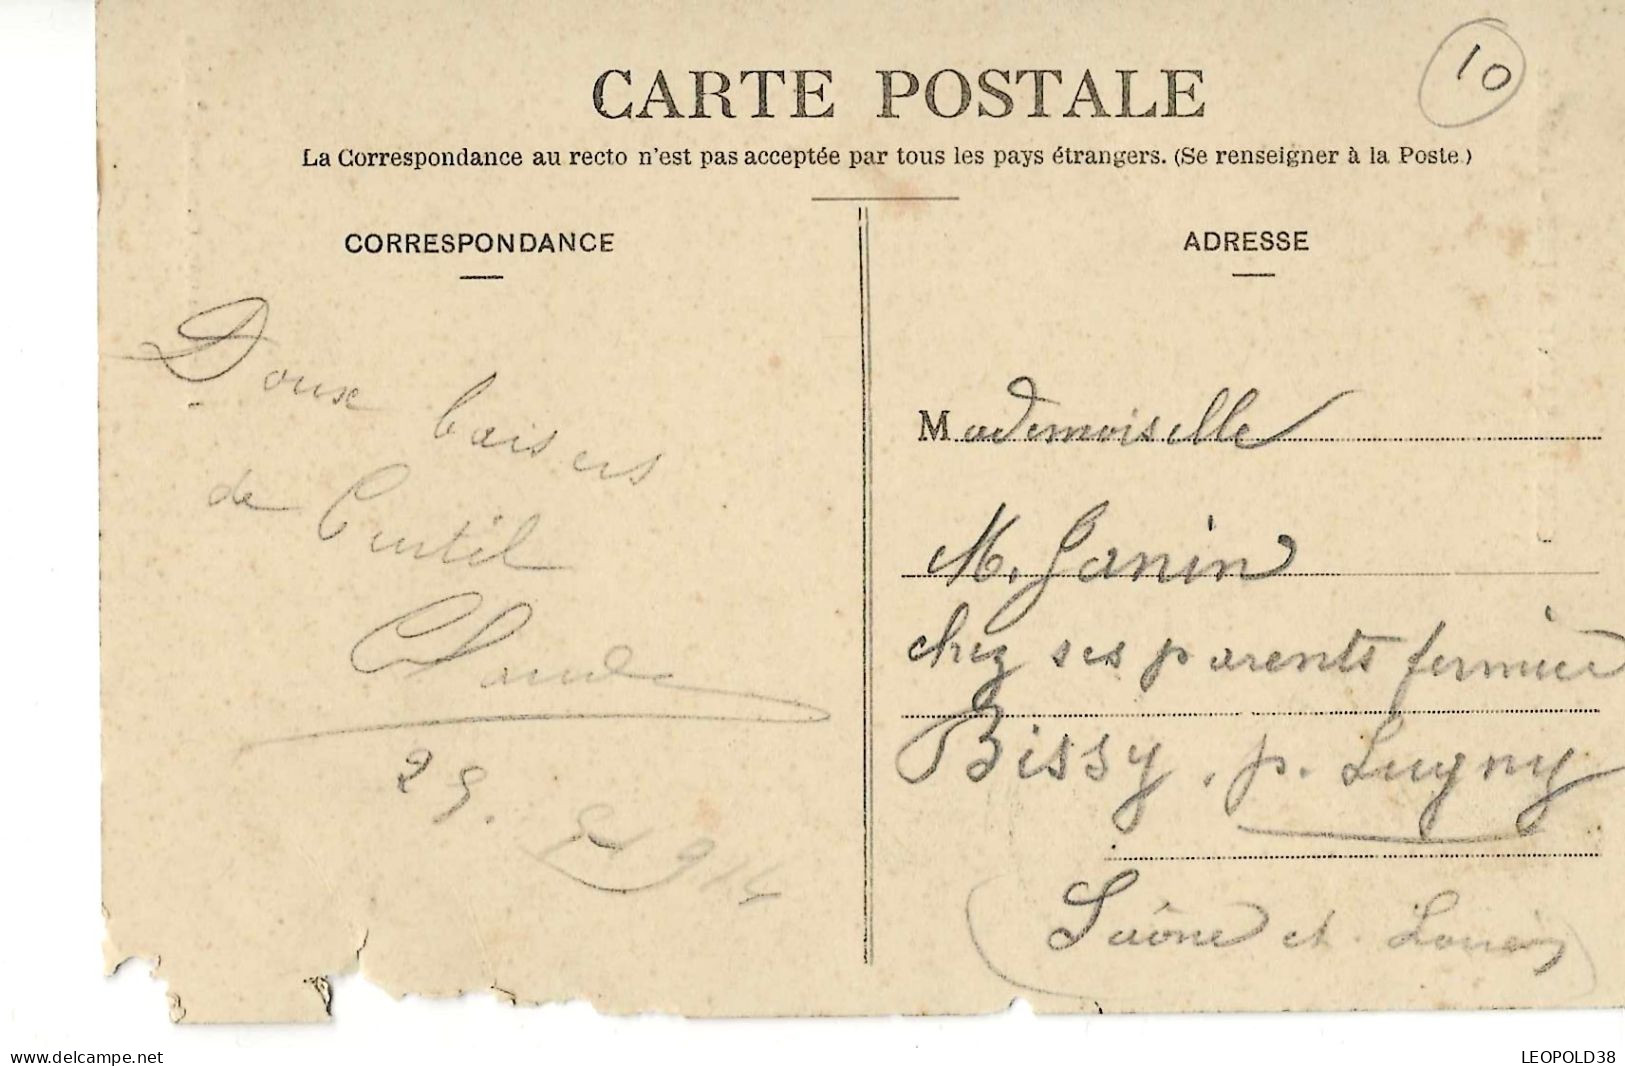 10
CARTE POSTALE
La Correspondance au recto n'est pas acceptée par tous les pays étrangers. (Se renseigner à la Poste.)
CORRESPONDANCE
ADRESSE
Doux baisers
de Curtil
Claude
Mademoiselle
M. Janin
chez ses parents fermier
Bissy. p. Lugny
(Saône et Loire)
www.delcampe.net
LEOPOLD38